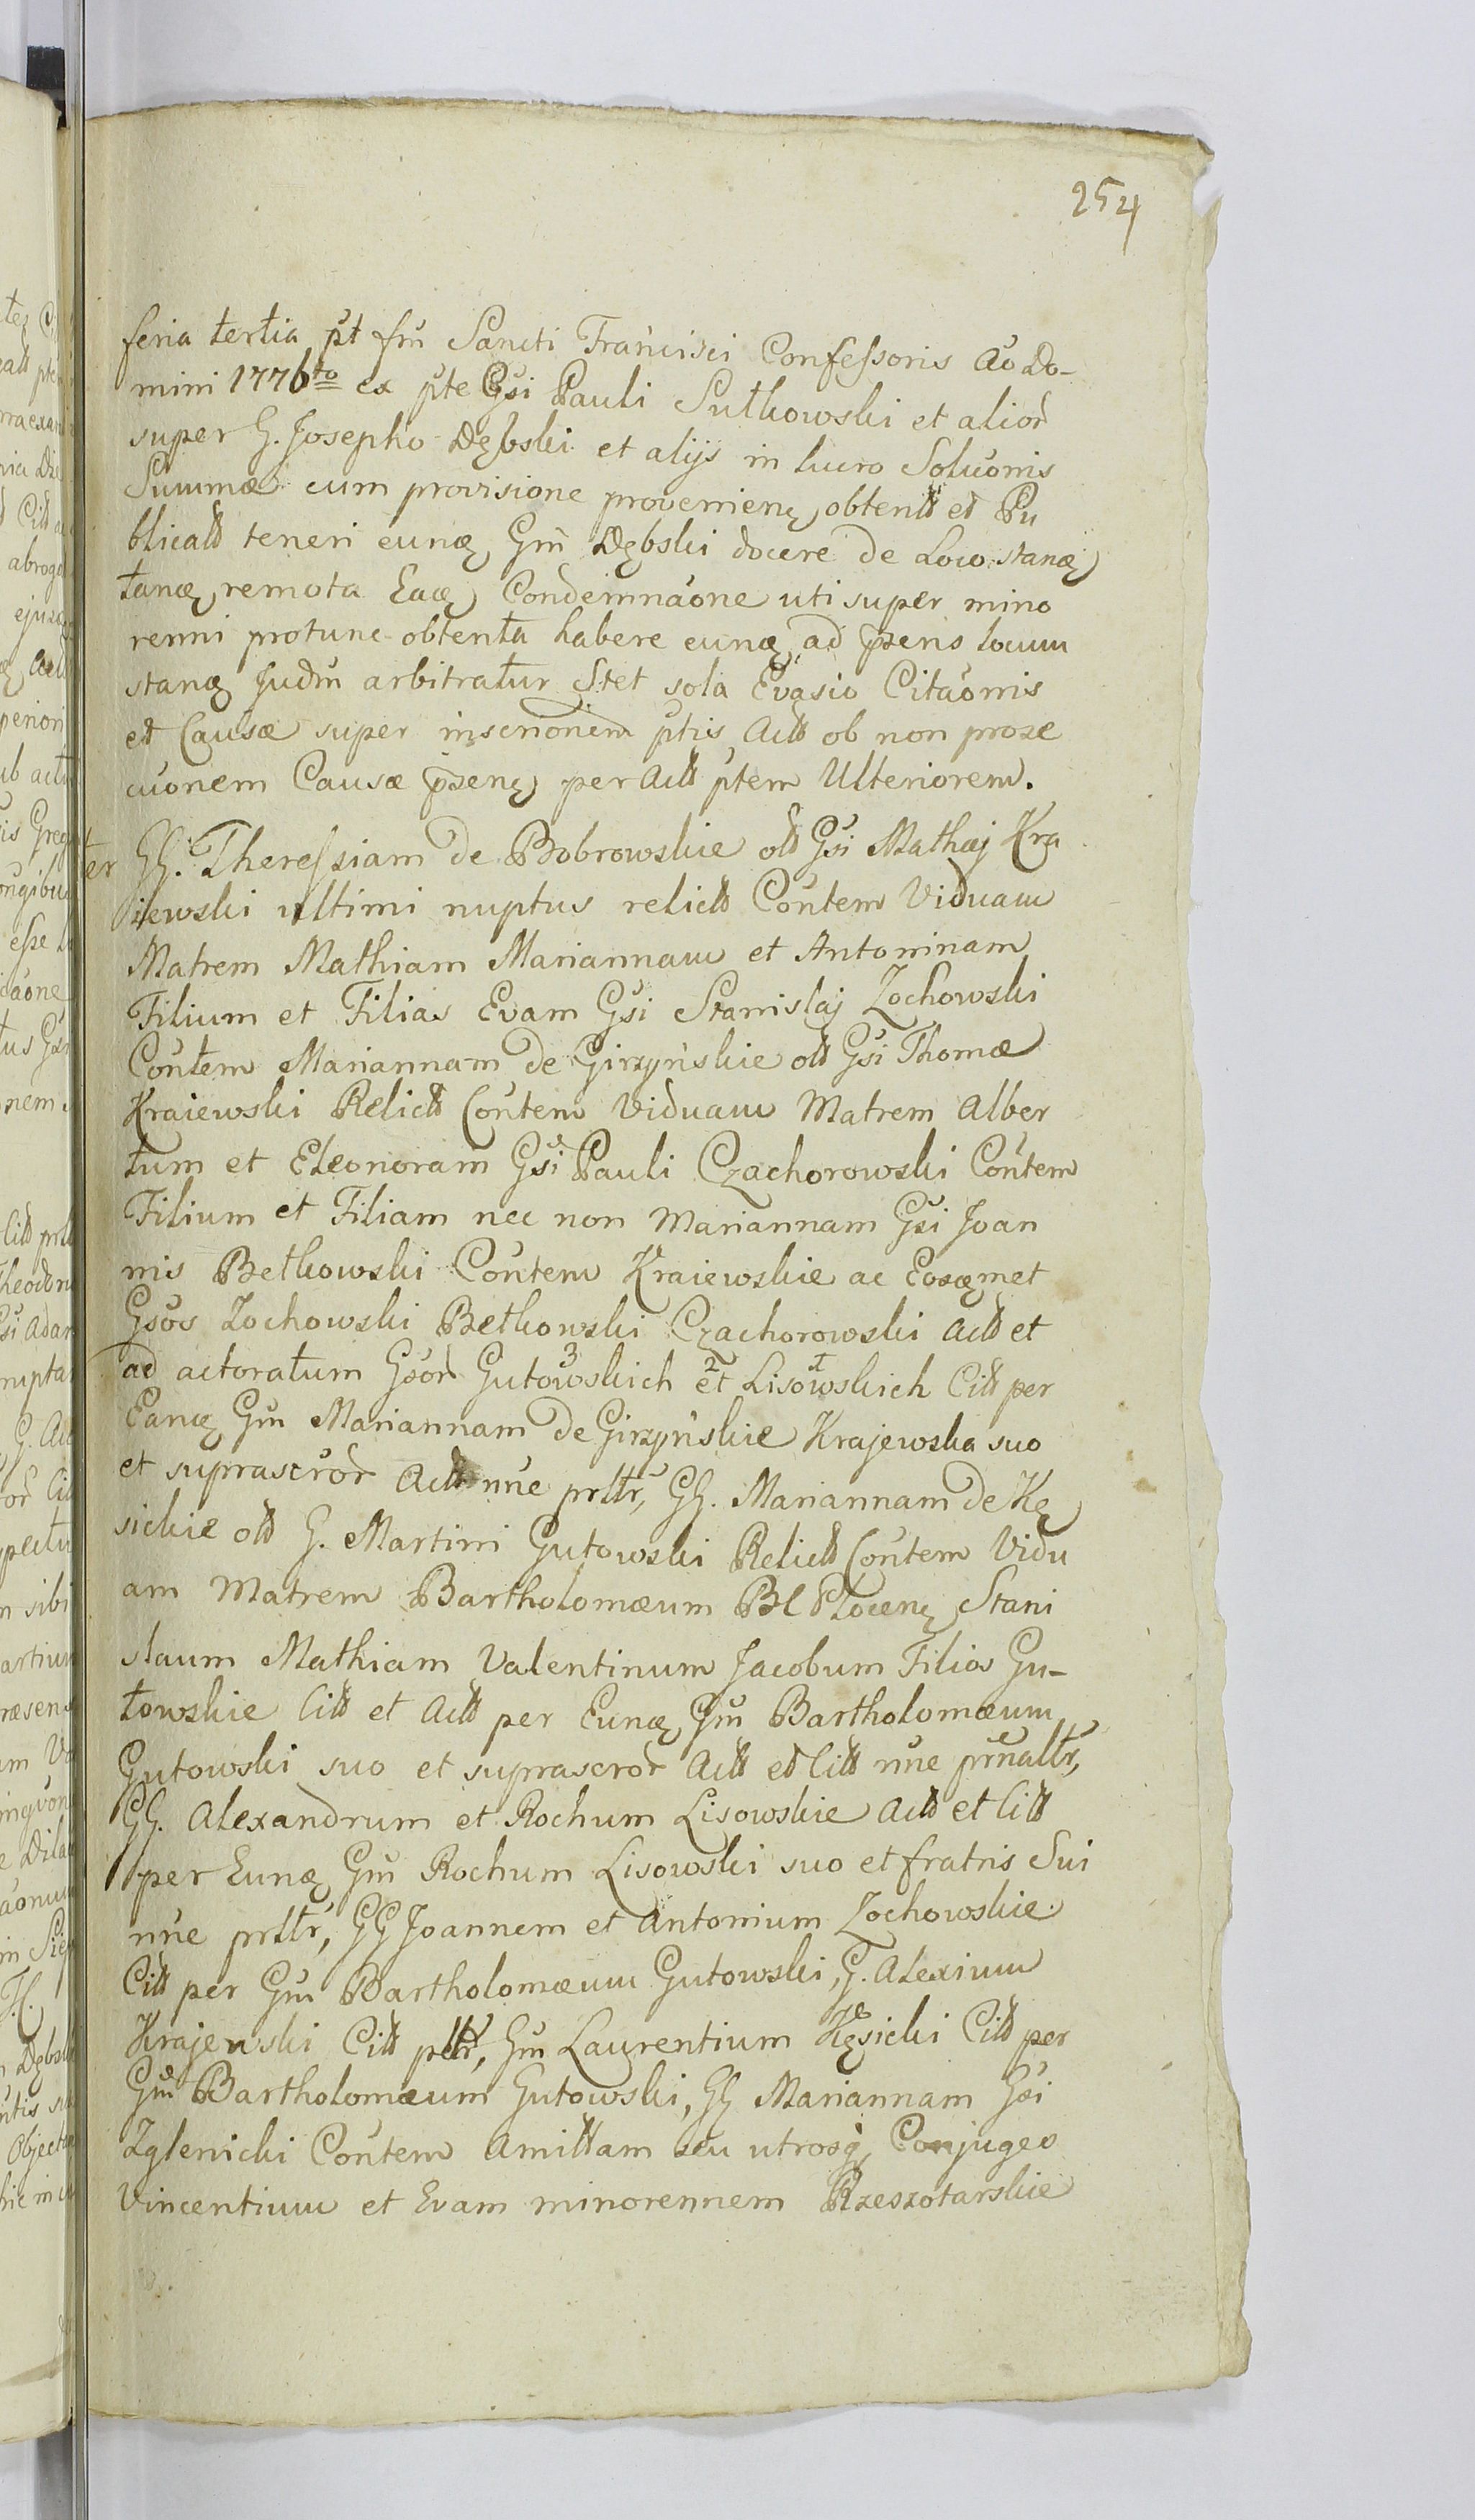 254
feria tertia pt fm Sancti Francisci Confessoris Ao Do-
mini 1776to ex pte Gsi Pauli Sutkowski et alior
super G. Josepho Dębski et alijs in lucro Soluonis
Summæ cum provisione provenienę obtentt et Pu
blicatt teneri eunę Gm Dębski docere de Loco stanę
tanę remota Eaę Condemnaone uti super mino
renni protunc obtenta habere eunę ad pzens locum
stanę Judm arbitratur Stet sola Evasio Citaonis
et Causæ super inscrionem ptis Actt ob non proze
cuonem Causæ pzenę per Actt ptem Ulteriorem.
ter GG. Theressiam de Bobrowskie olt Gsi Mathæj Kra
iewski ultimi nuptus relictt Contem Viduam
Matrem Mathiam Mariannam et Antoninam
Filium et Filias Evam Gsi Stanislaj Zochowski
Contem Mariannam de Girzyńskie olt Gsi Thomæ
Kraiewski Relictt Contem Viduam Matrem Alber
tum et Eleonoram Gsi Pauli Czachorowski Contem
Filium et Filiam nec non Mariannam Gsi Joan
nis Betkowski Contem Kraiewskie ac Eosęmet
Gsos Zochowski Betkowski Czachorowski Actt et
ad actoratum Gsor Gutowskich 3 et 2 Lisowskich 1 Citt per
Eanę Gm Mariannam de Girzyńskie Krajewska suo
et suprascror Actt nne prltr, GG. Mariannam de Kę
sickie olt G. Martini Gutowski Relictt Contem Vidu
am Matrem Bartholomæum BC Plocenę Stani
slaum Mathiam Valentinum Jacobum Filios Gu-
towskie Citt et Actt per Eunę Gm Bartholomæum
Gutowski suo et suprascror Actt et Citt nne prnaltr,
GG. Alexandrum et Rochum Lisowskie Actt et Citt
per Eunę Gm Rochum Lisowski suo et fratris Sui
nne prltr, GG Joannem et Antonium Zochowskie
Citt per Gm Bartholomæum Gutowski, G. Alexium
Krajewski Citt pltr, Gm Laurentium Kęsicki Citt per
Gm Bartholomæum Gutowski, GG Mariannam Gsi
Zglenicki Contem Amittam seu utrosq Conjuges
Vincentium et Evam minorennem Rzeszotarskie